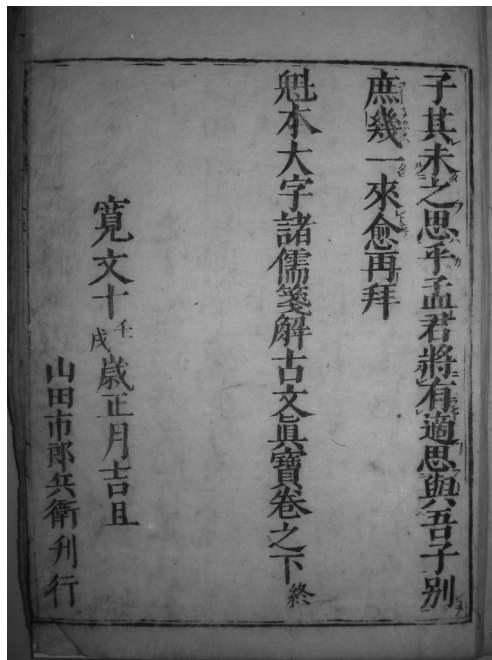 子其未之思乎孟君將有適思與吾子別
庶幾一來愈再拜
魁本大字諸儒箋解古文眞寳卷之下終
寛文十壬戌歳正月吉旦
山田市郎兵衛刋行